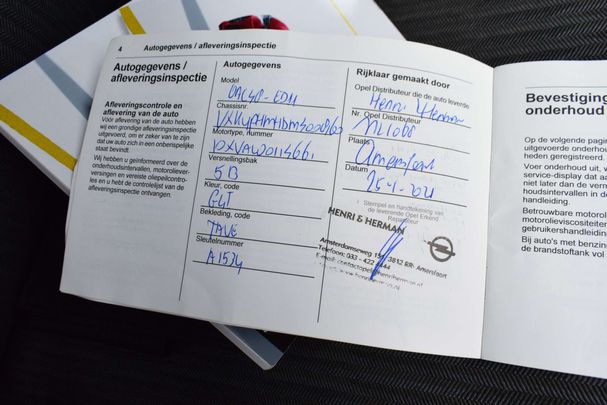 4 Autogegevens / afleveringsinspectie
Autogegevens /
afleveringsinspectie
Afleveringscontrole en
aflevering van de auto
Voor aflevering van de auto hebben
wij een grondige afleveringsinspectie
uitgevoerd, om er zeker van te zijn
dat uw auto zich in een onberispelijke
staat bevindt.
Wij hebben u geïnformeerd over de
onderhoudsintervallen, motoroliever-
versingen en vereiste oliepeilcontro-
les en u hebt de controlelijst van de
afleveringsinspectie ontvangen.
Autogegevens
Model
Chassisnr.
Motortype, nummer
Versnellingsbak
5B
Kleur, code
G4T
Bekleding, code
Sleutelnummer
A1534
Rijklaar gemaakt door
Opel Distributeur die de auto leverde
Henri & Herman
Nr. Opel Distributeur
Plaats
Amersfoort
Datum
25-1-2021
Stempel en handtekening van
de leverende Opel Erkend
Reparateur
HENRI & HERMAN
Amsterdamseweg 3812 RR Amersfoort
Telefoon: 033 - 422
E-mail:
Bevestiging
onderhoud
Op de volgende pagin
uitgevoerde onderhou
heden geregistreerd.
Voor onderhoud uit, w
service-display dat aa
niet later dan de verm
houdsintervallen in d
handleiding.
Betrouwbare motorol
motorolieviscositeiter
gebruikershandleiding
Bij auto's met benzin
de brandstoftank vol